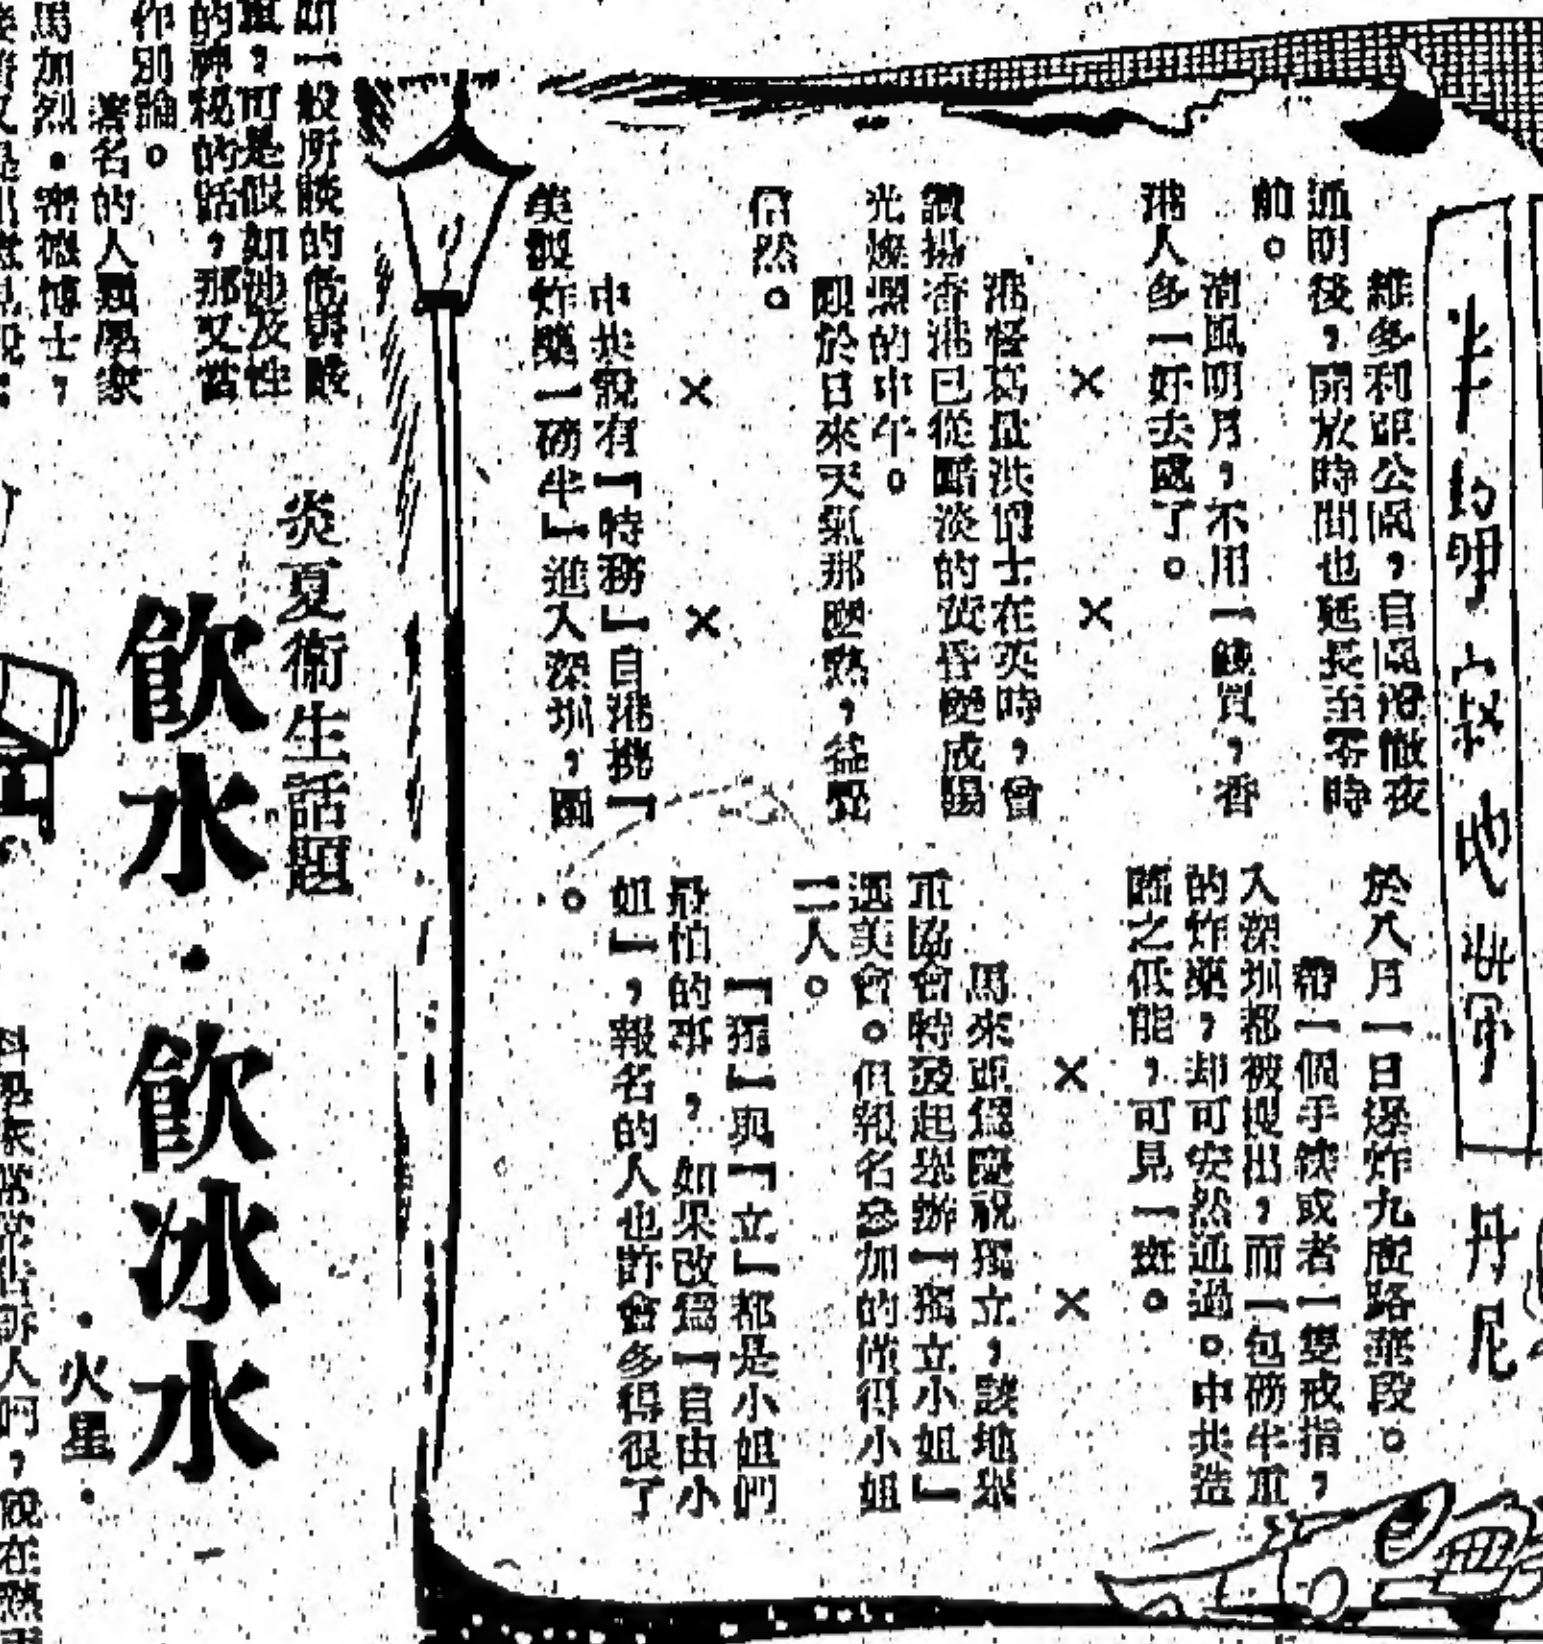 丹尼
維多利亞公園，自園燈徹夜
通明後，開放時間也延長至零時
前。
清風明月，不用一錢買，香
港人多一好去處了。
×
×
港督葛量洪爵士在英時，曾
讚揚香港已從黯淡的黃昏變成陽
光燦爛的中午。
觀於日來天氣那麼熱，益覺
信然。
×
×
中共說有「特務」自港携「
美製炸藥一磅半」進入深圳，圖
於八月一日爆炸九廣路華段。
帶一個手錶或者一隻戒指，
入深圳都被搜出，而一包磅半重
的炸藥，却可安然通過。中共造
謠之低能，可見一斑。
×
×
馬來亞為慶祝獨立，該地舉
重協會特發起舉辦「獨立小姐」
選美會。但報名參加的僅得小姐
二人。
「獨」與「立」都是小姐們
最怕的事，如果改為「自由小
姐」，報名的人也許會多得很了
。
炎夏衞生話題
飲水·飲冰水
·火星·
一般所談的危害暖
，可是假如涉及性
的神秘的話，那又當
作別論。
著名的人類學家
馬加烈·密德博士，
科學家常常告訴人們，說在熱